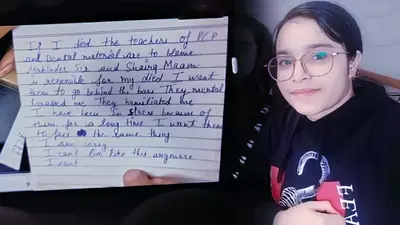 If I died the teachers of PCP
and Dental material are to blame
Mahinder Sir and Shairg Maam
is responsible for my died I want
them to go behind the bars They mental
harassed me They humiliated me
I have been in stress because of
them for a long time I want them
to face the same thing
I am sorry
I can't live like this anymore
I can't